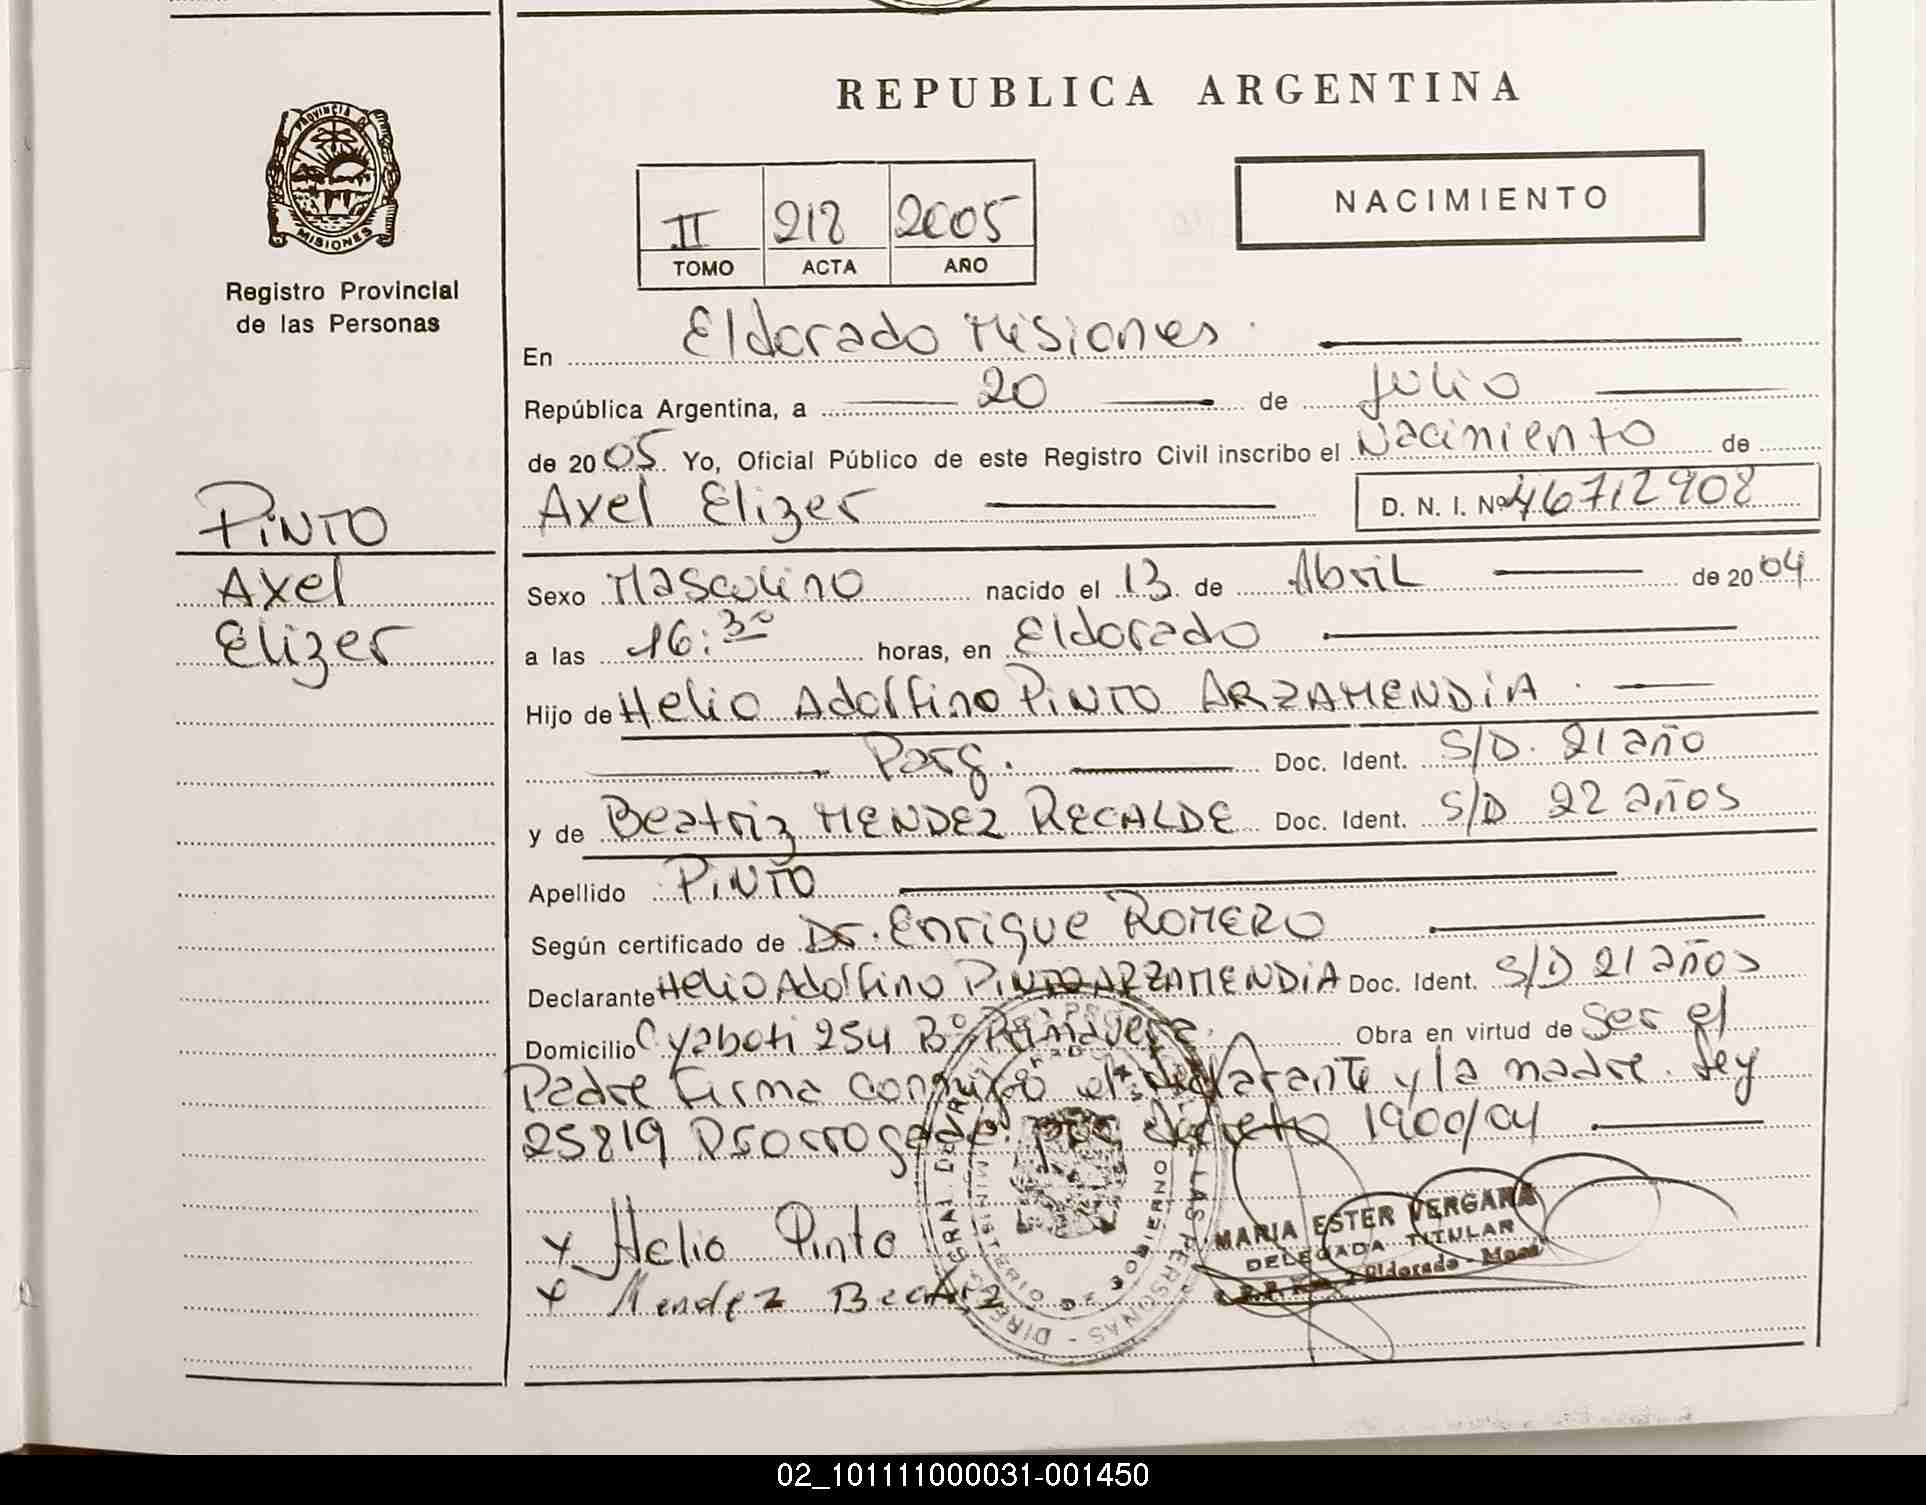 REPUBLICA ARGENTINA
PROVINCIA DE
MISIONES
Registro Provincial
de las Personas
II 218 2005
TOMO ACTA AÑO
NACIMIENTO
En Eldorado Misiones
República Argentina, a 20 de Julio
de 2005 Yo, Oficial Público de este Registro Civil inscribo el Nacimiento de
Axel Elizer D. N. I. Nº 46712908
PINTO
Axel
Elizer
Sexo Masculino nacido el 13 de Abril de 2004
a las 16:30 horas, en Eldorado
Hijo de Helio Adolfino PINTO ARZAMENDIA
Parg. Doc. Ident. S/D. 21 año
y de Beatriz MENDEZ RECALDE Doc. Ident. S/D 22 años
Apellido PINTO
Según certificado de Dr. Enrique ROMERO
Declarante Helio Adolfino PINTO ARZAMENDIA Doc. Ident. S/D 21 años
Domicilio Yaboti 254 Bº Primavera. Obra en virtud de ser el
Padre firma conmigo el declarante y la madre. Ley
25819 Prorrogada por decreto 1900/04
x Helio Pinto
x Mendez Beatriz
MARIA ESTER VERGARA
DELEGADA TITULAR
Eldorado - Mnes
LAS PERSONAS - DIREC. GRAL DE
MINISTERIO DE GOBIERNO
02_101111000031-001450